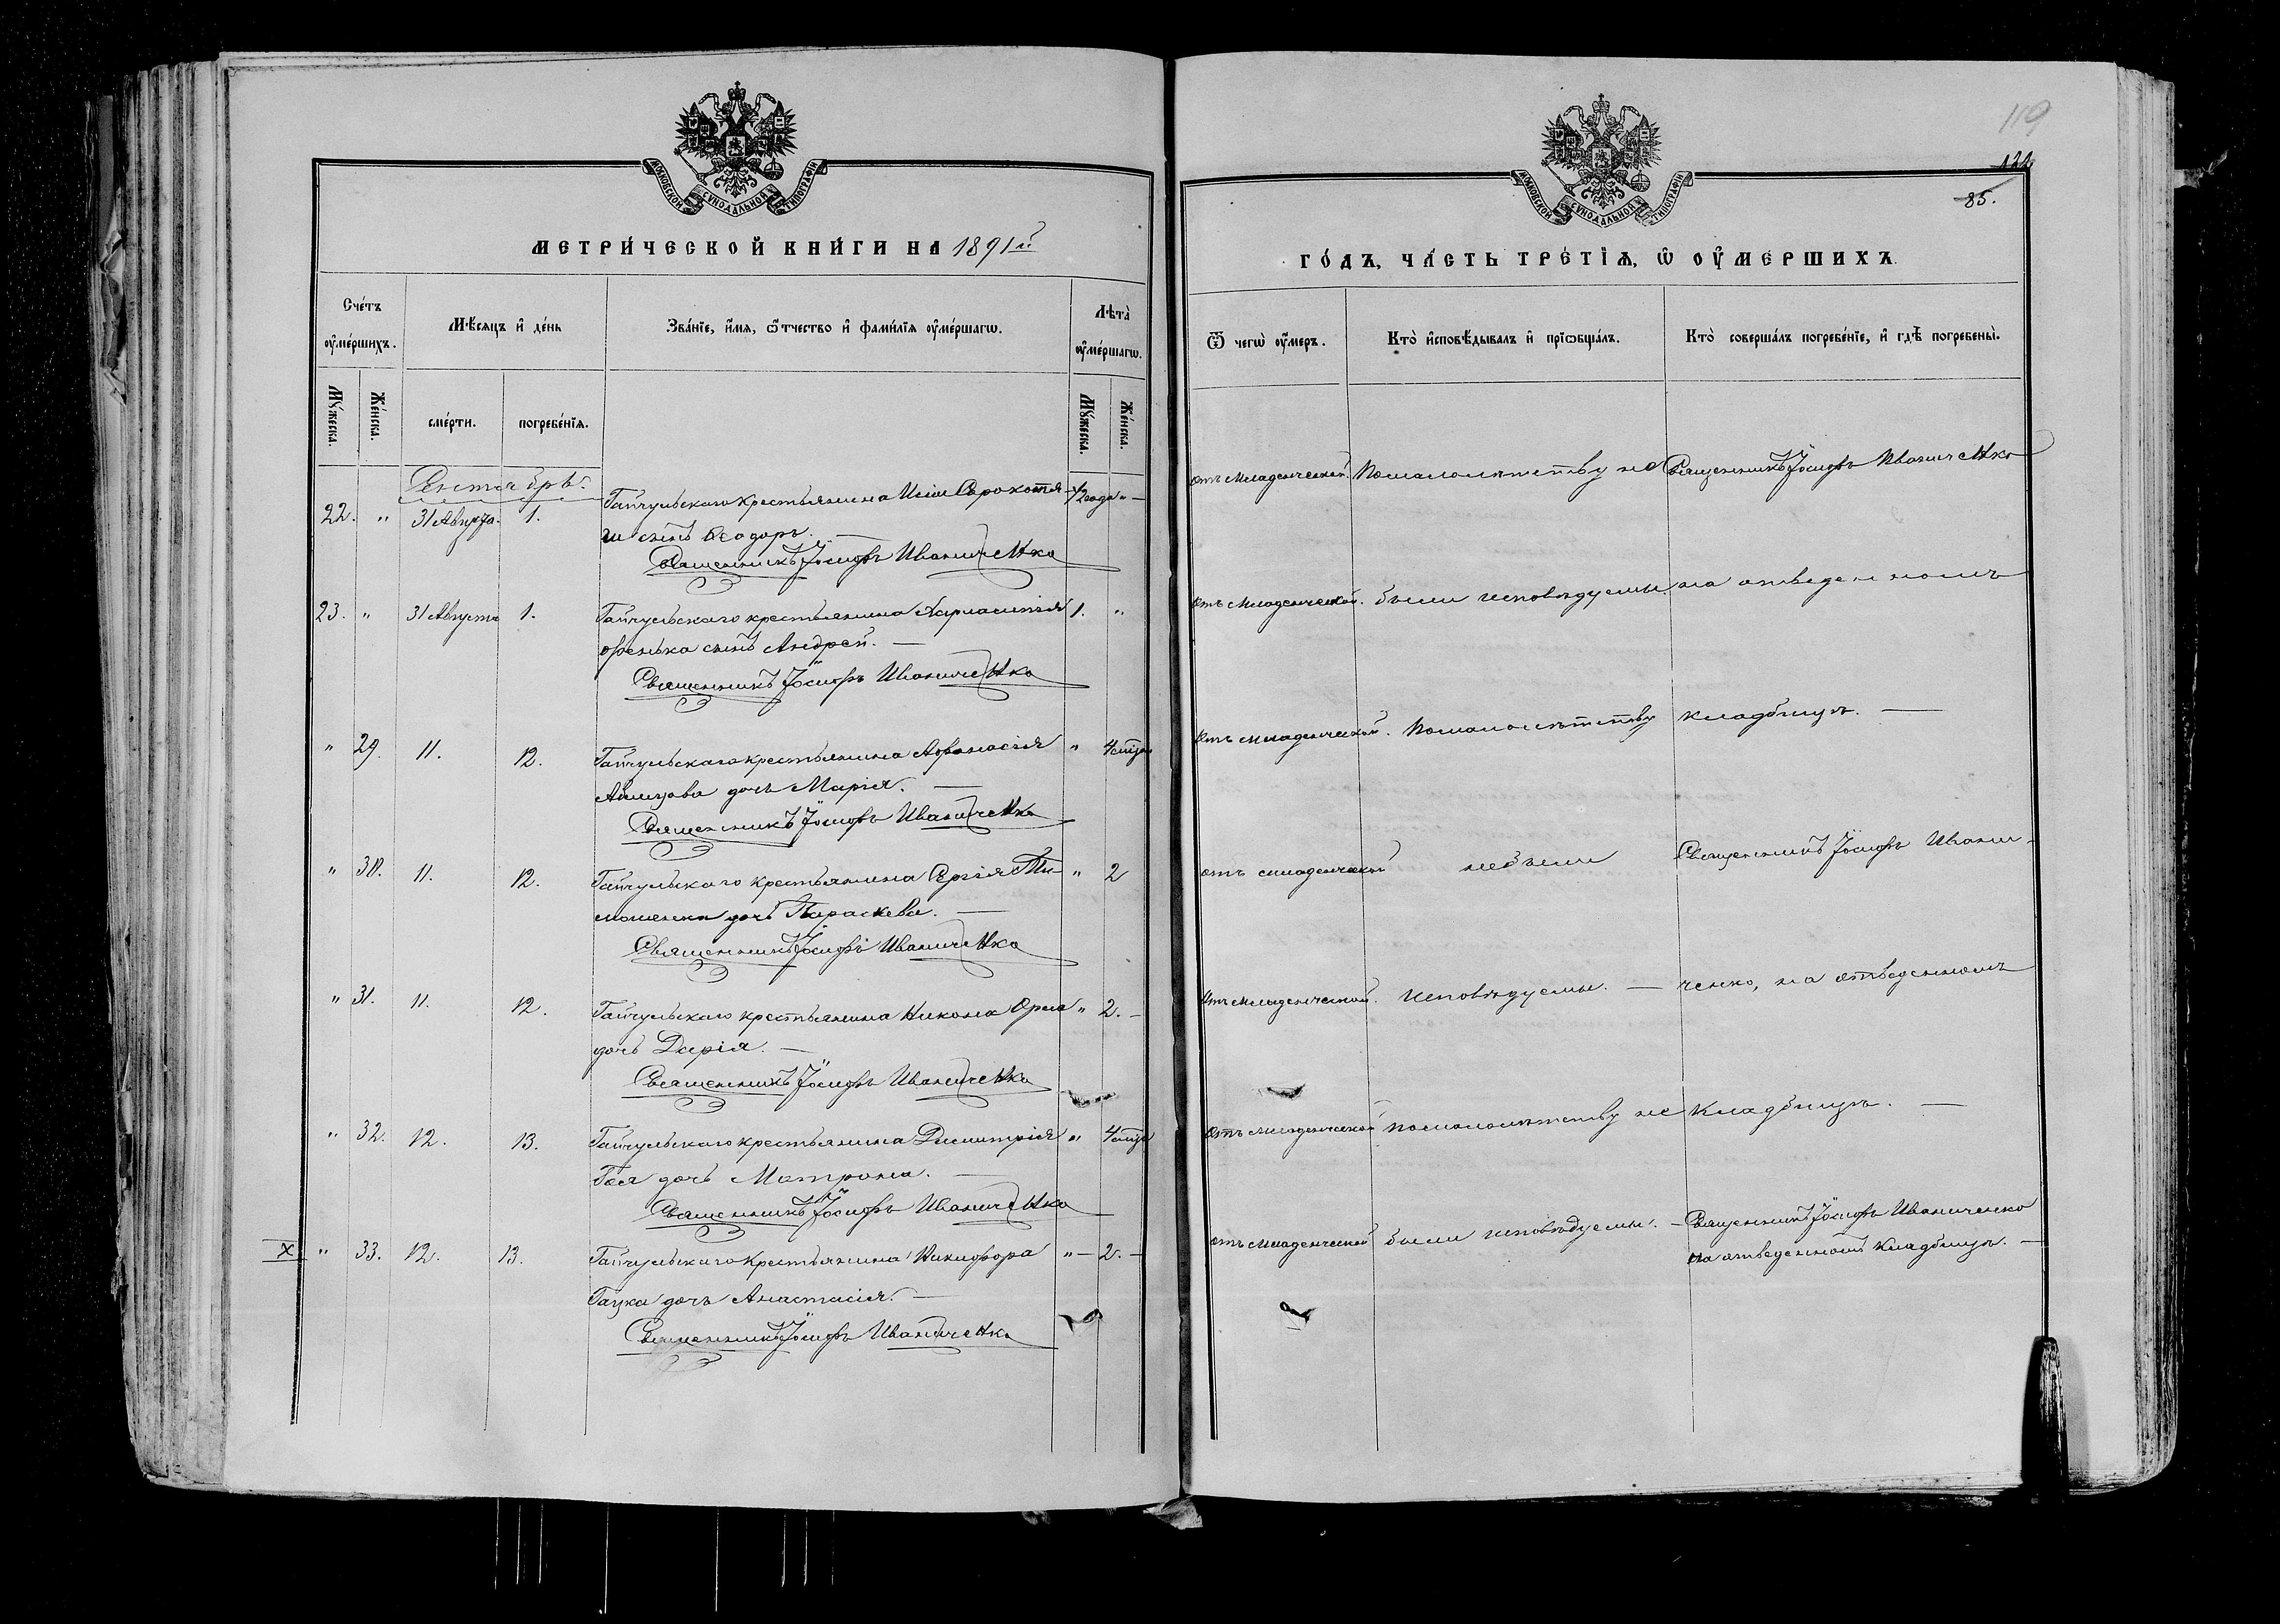 МОСКОВСКОЙ СѴНОДАЛЬНОЙ ТИПОГРАФІИ
МЕТРИ́ЧЕСКОЙ КНИ́ГИ НА 1891й
Сче́тъ ᲂу҆ме́ршихъ.
Мѣ́сяцъ и҆ де́нь
Зва́нїе, и҆́мя, ѻ҆́тчество и҆ фами́лїя ᲂу҆ме́ршагѡ.
Лѣта̀ ᲂу҆ме́ршагѡ.
Мꙋ́жеска.
Же́нска.
сме́рти.
погребе́нїя.
Мꙋ́жеска.
Же́нска.
Сентябрь.
22. " 31 Августа. 1. Гайчульскаго крестьянина 1/2 года " —
сынъ Ѳеодоръ. —
Священникъ Іосифъ Иваниченко
23. " 31 Августа 1. Гайчульскаго крестьянина 1. "
сынъ Андрей. —
Священникъ Іосифъ Иваниченко
" 29. 11. 12. Гайчульскаго крестьянина Афанасія " 4
дочь Марія. —
Священникъ Іосифъ Иваниченко
" 30. 11. 12. Гайчульскаго крестьянина Сергія Ти- " 2
мошенка дочь Параскева. —
Священникъ Іосифъ Иваниченко
" 31. 11. 12. Гайчульскаго крестьянина Никона Орла " 2. —
дочь Дарія. —
Священникъ Іосифъ Иваниченко
" 32. 12. 13. Гайчульскаго крестьянина Димитрія " 4
Гая дочь Матрона. —
Священникъ Іосифъ Иваниченко
X " 33. 12. 13. Гайчульскаго крестьянина Никифора " — 2. —
Гацка дочь Анастасія. —
Священникъ Іосифъ Иваниченко
119
121
85.
МОСКОВСКОЙ СѴНОДАЛЬНОЙ ТИПОГРАФІИ
ГО́ДЪ, ЧА́СТЬ ТРЕ́ТЇѦ, Ѡ҆ ОУ҆МЕ́РШИХЪ.
Ѿ чегѡ̀ ᲂу҆́меръ.
Кто̀ и҆сповѣ́дывалъ и҆ прїѡбща́лъ.
Кто̀ соверша́лъ погребе́нїе, и҆ гдѣ̀ погребены̀.
отъ младенческой. По малолѣтству не Священникъ Іосифъ Иваниченко
отъ младенческой. были исповѣдуемы на отведенномъ
отъ младенческой. По малолѣтству кладбищѣ. —
отъ младенческой не были Священникъ Іосифъ Ивани-
отъ младенческой. исповѣдуемы. — ченко, на отведенномъ
отъ младенческой по малолѣтству не кладбищѣ. —
отъ младенческой были исповѣдуемы. — Священникъ Іосифъ Иваниченко
на отведенномъ кладбищѣ. —